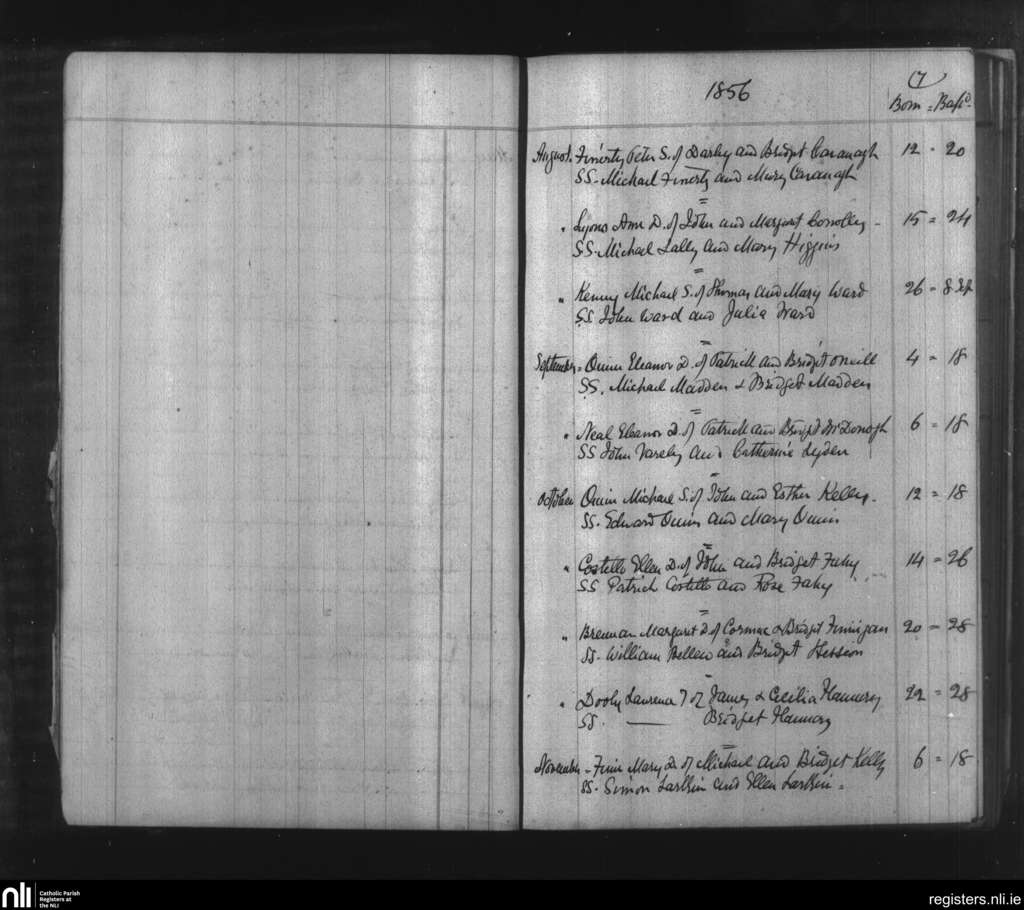 1856
(7)
Born = Bapd.
August. Finerty Peter S. of Darby and Bridget Cavanagh 12 = 20
SS. Michael Finerty and Mary Cavanagh
" Lyons Ann D. of John and Margaret Conolly - 15 = 24
SS. Michael Lally and Mary Higgins
" Kenny Michael S. of Thomas and Mary Ward 26 = 8 Sep
SS John Ward and Julia Ward
September = Quinn Eleanor D. of Patrick and Bridget Oneill 4 = 18
SS. Michael Madden & Bridget Madden
" Neal Eleanor D. of Patrick and Bridget McDonogh 6 = 18
SS John and Catherine Lyden
October Quin Michael S. of John and Esther Kelly. 12 = 18
SS. Edward Quin and Mary Quin
" Costello Ellen D. of John and Bridget Fahy 14 = 26
SS Patrick Costello and Rose Fahy
" Brennan Margaret D. of Cormac & Bridget Finnigan 20 = 28
SS. William Bellew and Bridget Hession
" Dooly Laurence of James & Cecilia Flannery 22 = 28
SS. —— Bridget Flannery
November = Finn Mary D. of Michael and Bridget Kelly 6 = 18
SS. Simon Larkin and Ellen Larkin =
nli
Catholic Parish
Registers at
the NLI
registers.nli.ie